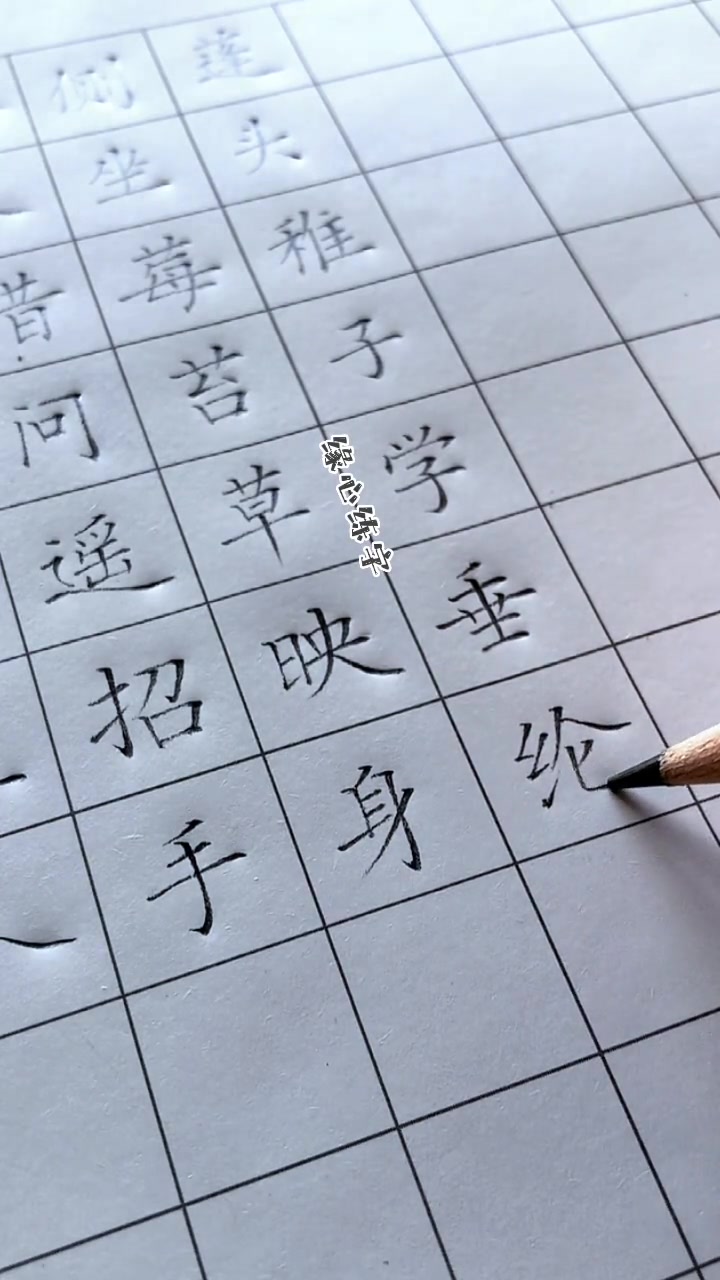 蓬头稚子学垂纶
侧坐莓苔草映身
问遥招手
缘心练字